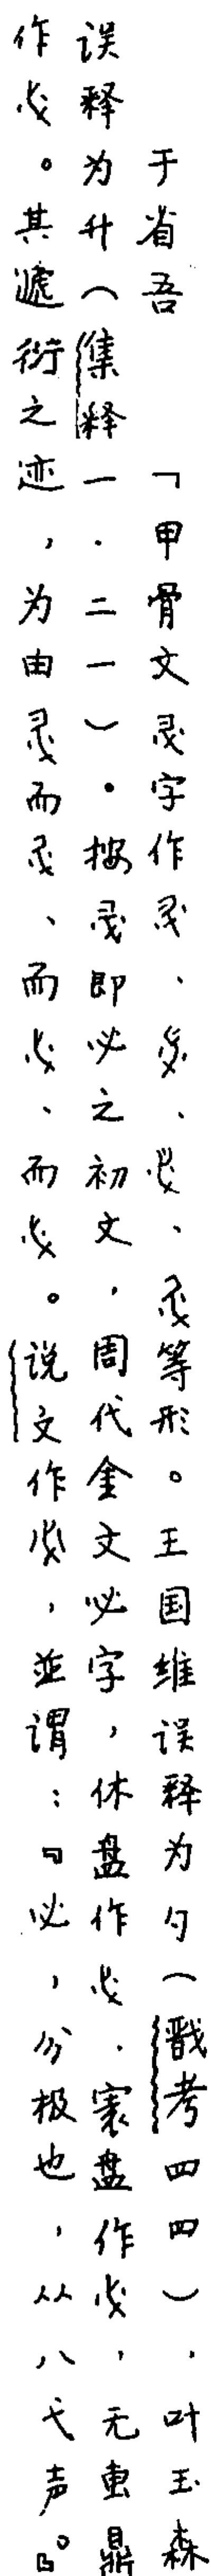 于省吾 「甲骨文字作、、、等形。王国维误释为勺(戬考四四),叶玉森
误释为升(集释一·二一)。按即必之初文,周代金文必字,休盘作,寰盘作,无叀鼎
作。其递衍之迹,为由而、而、而。说文作,并谓:『必,分极也,从八弋声。』